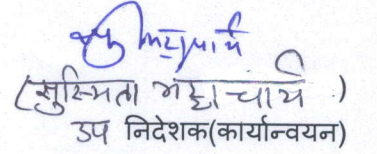 (सुस्मिता भट्टाचार्य)
उप निदेशक(कार्यान्वयन)